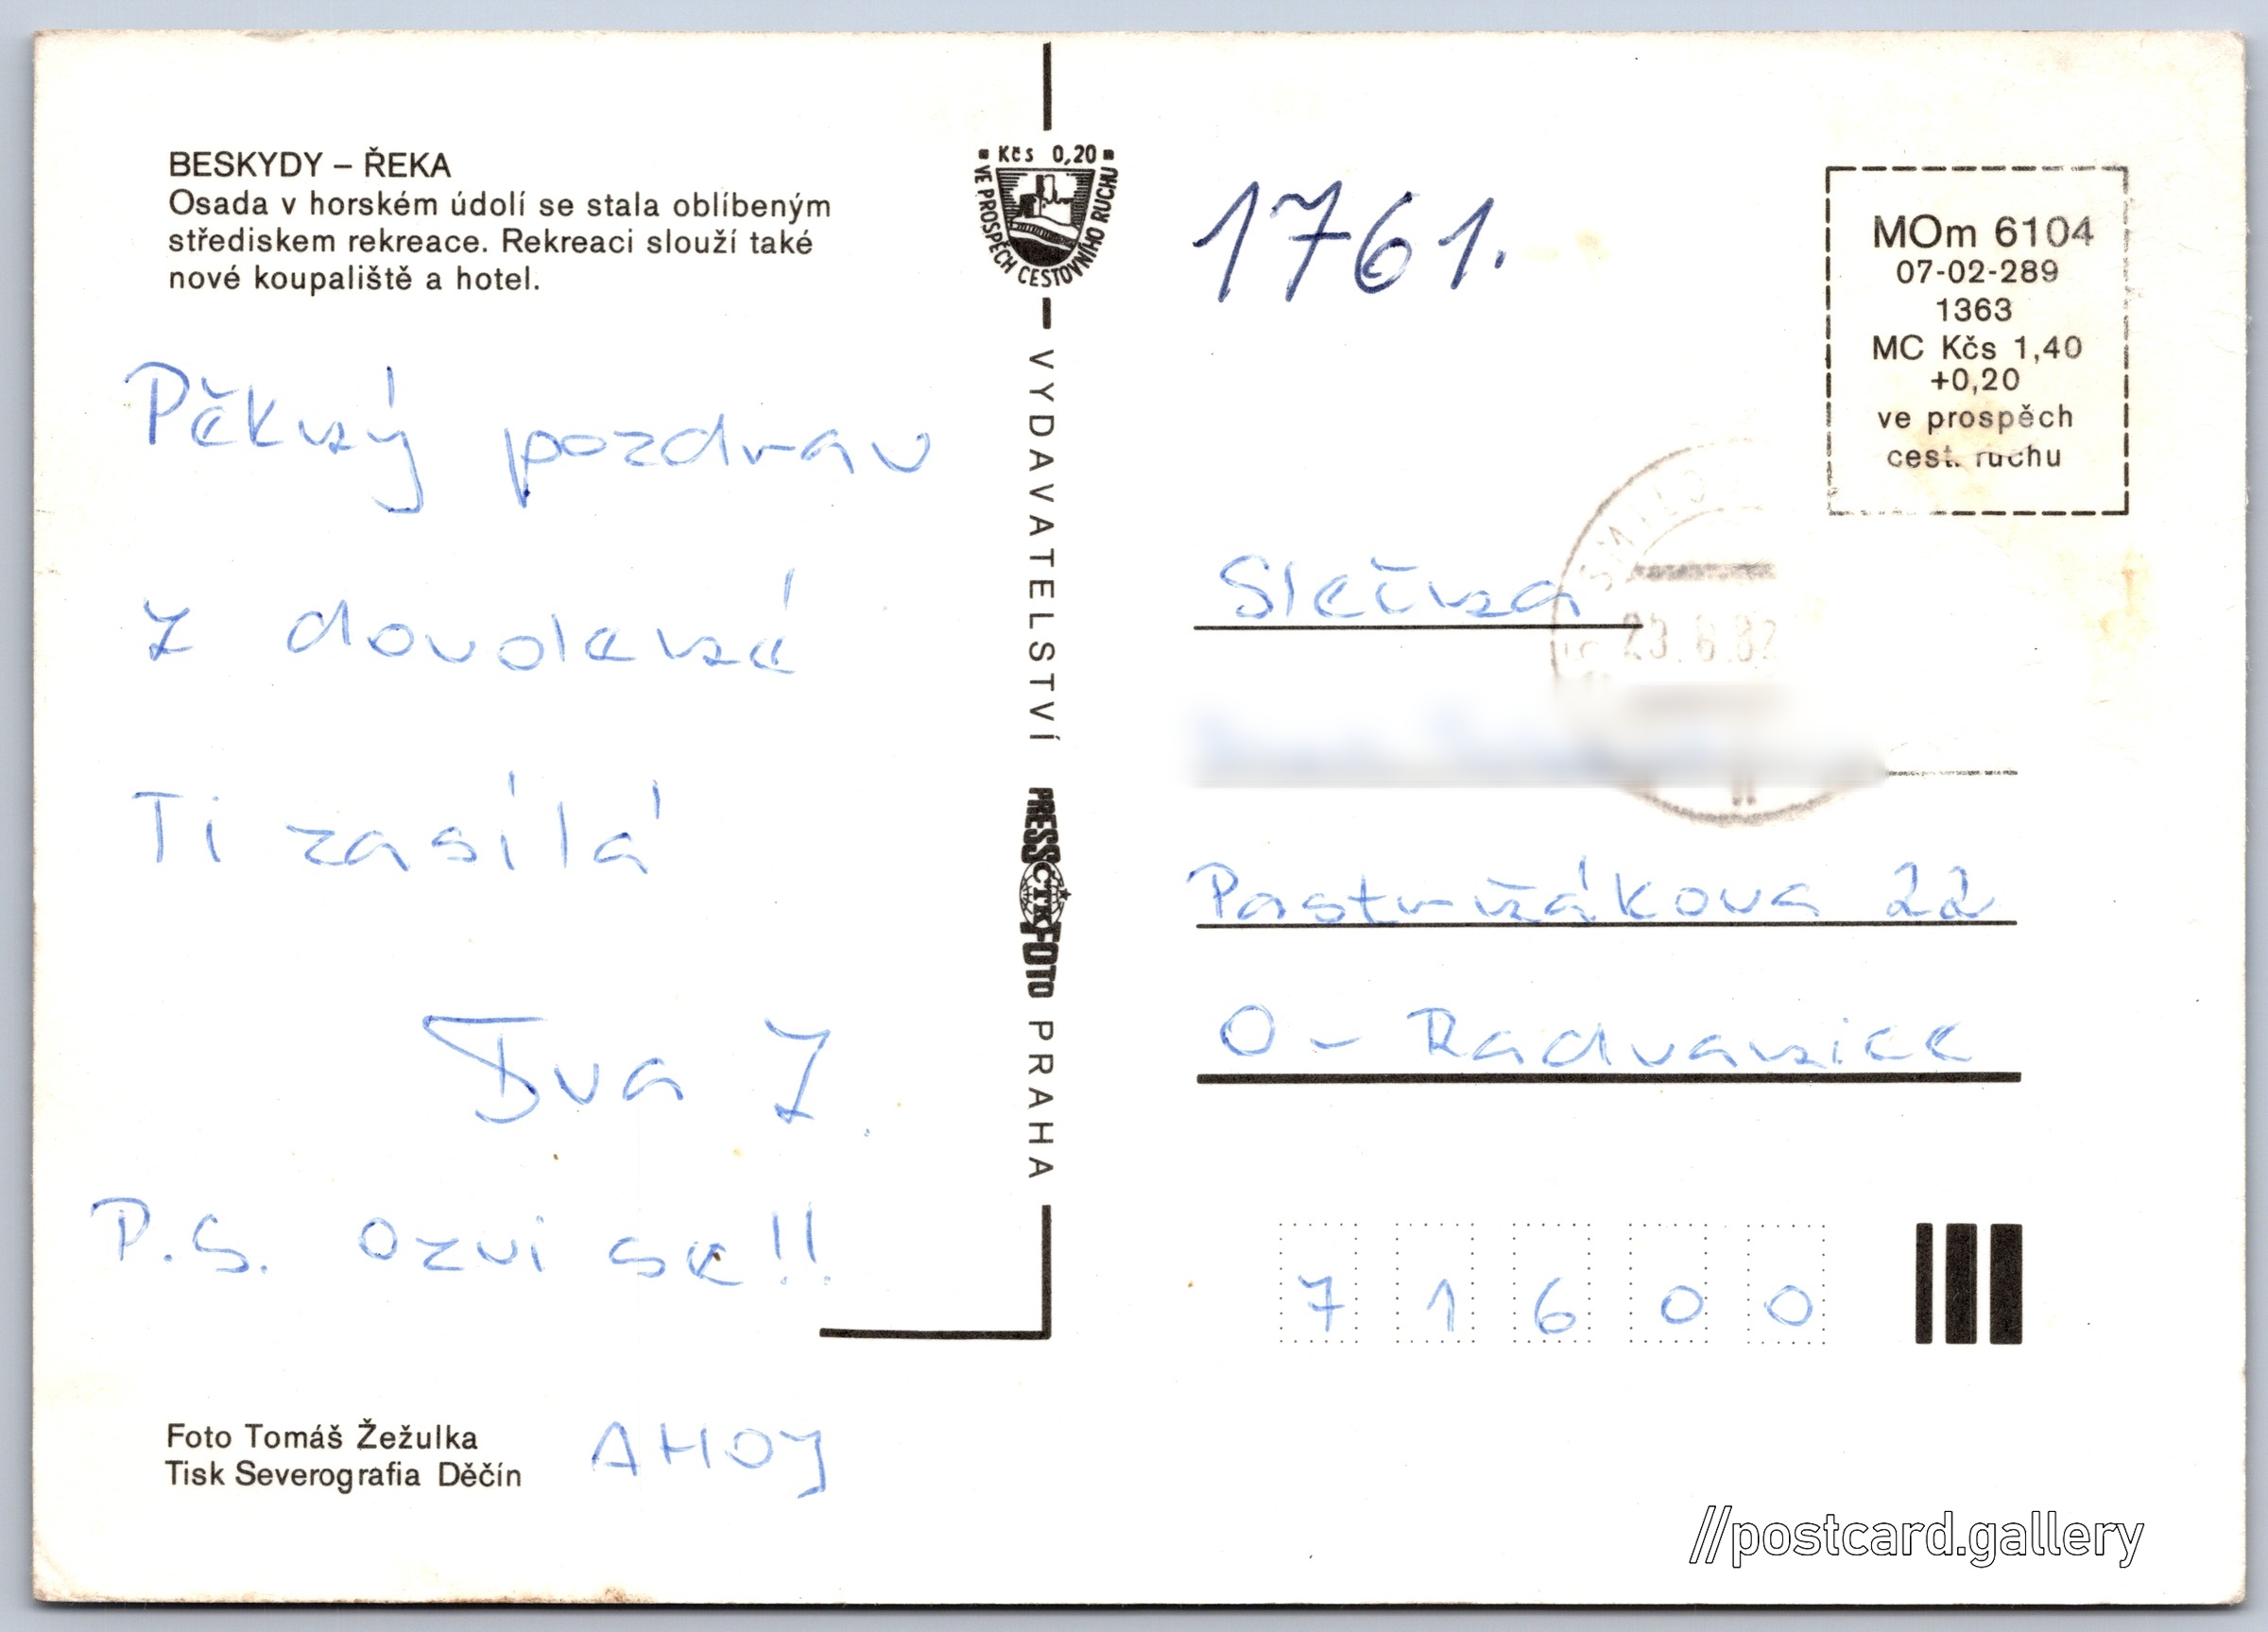 BESKYDY – ŘEKA
Osada v horském údolí se stala oblíbeným
střediskem rekreace. Rekreaci slouží také
nové koupaliště a hotel.
Pěkný pozdrav
z dovolené
Ti zasílá
P.S. Ozvi se!!
Foto Tomáš Žežulka
Tisk Severografia Děčín
AHOJ
Kčs 0,20
VE PROSPĚCH CESTOVNÍHO RUCHU
VYDAVATELSTVÍ PRESSFOTO PRAHA
ČTK
1761.
MOm 6104
07-02-289
1363
MC Kčs 1,40
+0,20
ve prospěch
cest. ruchu
23.6.82
Slečna
22
O - Radvanice
7 1 6 0 0
//postcard.gallery